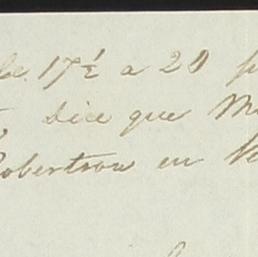 de 17½ a 20 p
dice que M
Robertson en Ve